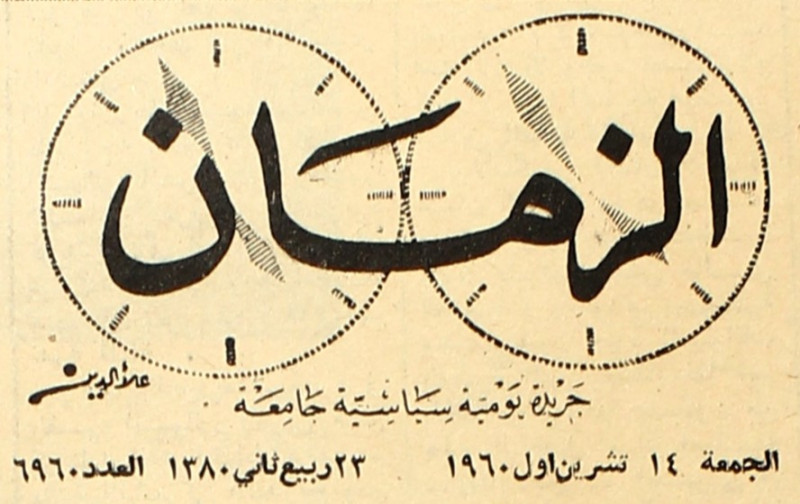 الزمان
علاء الدين
جريدة يومية سياسية جامعة
الجمعة ١٤ تشرين اول ١٩٦٠ ٢٣ ربيع ثاني ١٣٨٠ العدد ٦٩٦٠